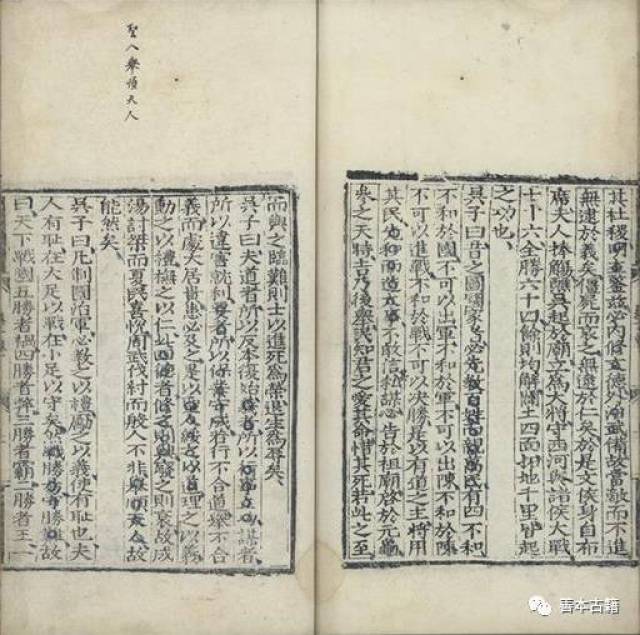 其社稷明主鑒茲必內修文德外治武備故當敵而不進
無逮於義矣僵屍而哀之無逮於仁矣於是文侯身自布
席夫人捧觴醮吳起於廟立為大將守西河與諸侯大戰
七十六全勝六十四餘則均解闢土四面拓地千里皆起
之功也
吳子曰昔之圖國家者必先教百姓而親萬民有四不和
不和於國不可以出軍不和於軍不可以出陳不和於陳
不可以進戰不和於戰不可以決勝是以有道之主將用
其民先和而造大事不敢信私謀必告於祖廟啓於元龜
參之天時吉乃後舉民知君之愛其命惜其死若此之至
聖人舉順天人
而與之臨難則士以進死為榮退生為辱矣
吳子曰夫道者所以反本復始義者所以行事立功謀者
所以違害就利要者所以保業守成若行不合道舉不合
義而處大居貴患必及之是以聖人綏之以道理之以義
動之以禮撫之以仁此四德者修之則興廢之則衰故成
湯討桀而夏民喜悅周武伐紂而殷人不非舉順天人故
能然矣
吳子曰凡制國治軍必教之以禮勵之以義使有恥也夫
人有恥在大足以戰在小足以守矣然戰勝易守勝難故
曰天下戰國五勝者禍四勝者弊三勝者霸二勝者王一
善本古籍